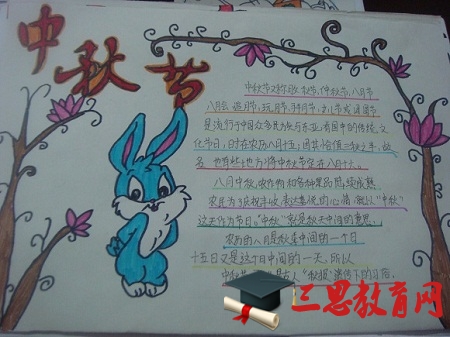 中秋节
中秋节又称月夕、秋节、仲秋节、八月节
八月会、追月节、玩月节、拜月节、女儿节或团圆节
是流行于中国众多民族与东亚诸国中的传统文
化节日,时在农历八月十五;因其恰值三秋之半,故
名,也有些地方将中秋节定在八月十六。
八月中秋,农作物和各种果品陆续成熟
农民为了庆祝丰收,表达喜悦的心情,就以"中秋"
这天作为节日。"中秋"就是秋天中间的意思,
农历的八月是秋季中间的一个月
十五日又是这个月中间的一天,所以
中秋节 古人"秋报"遗传下的习俗。
三思教育网